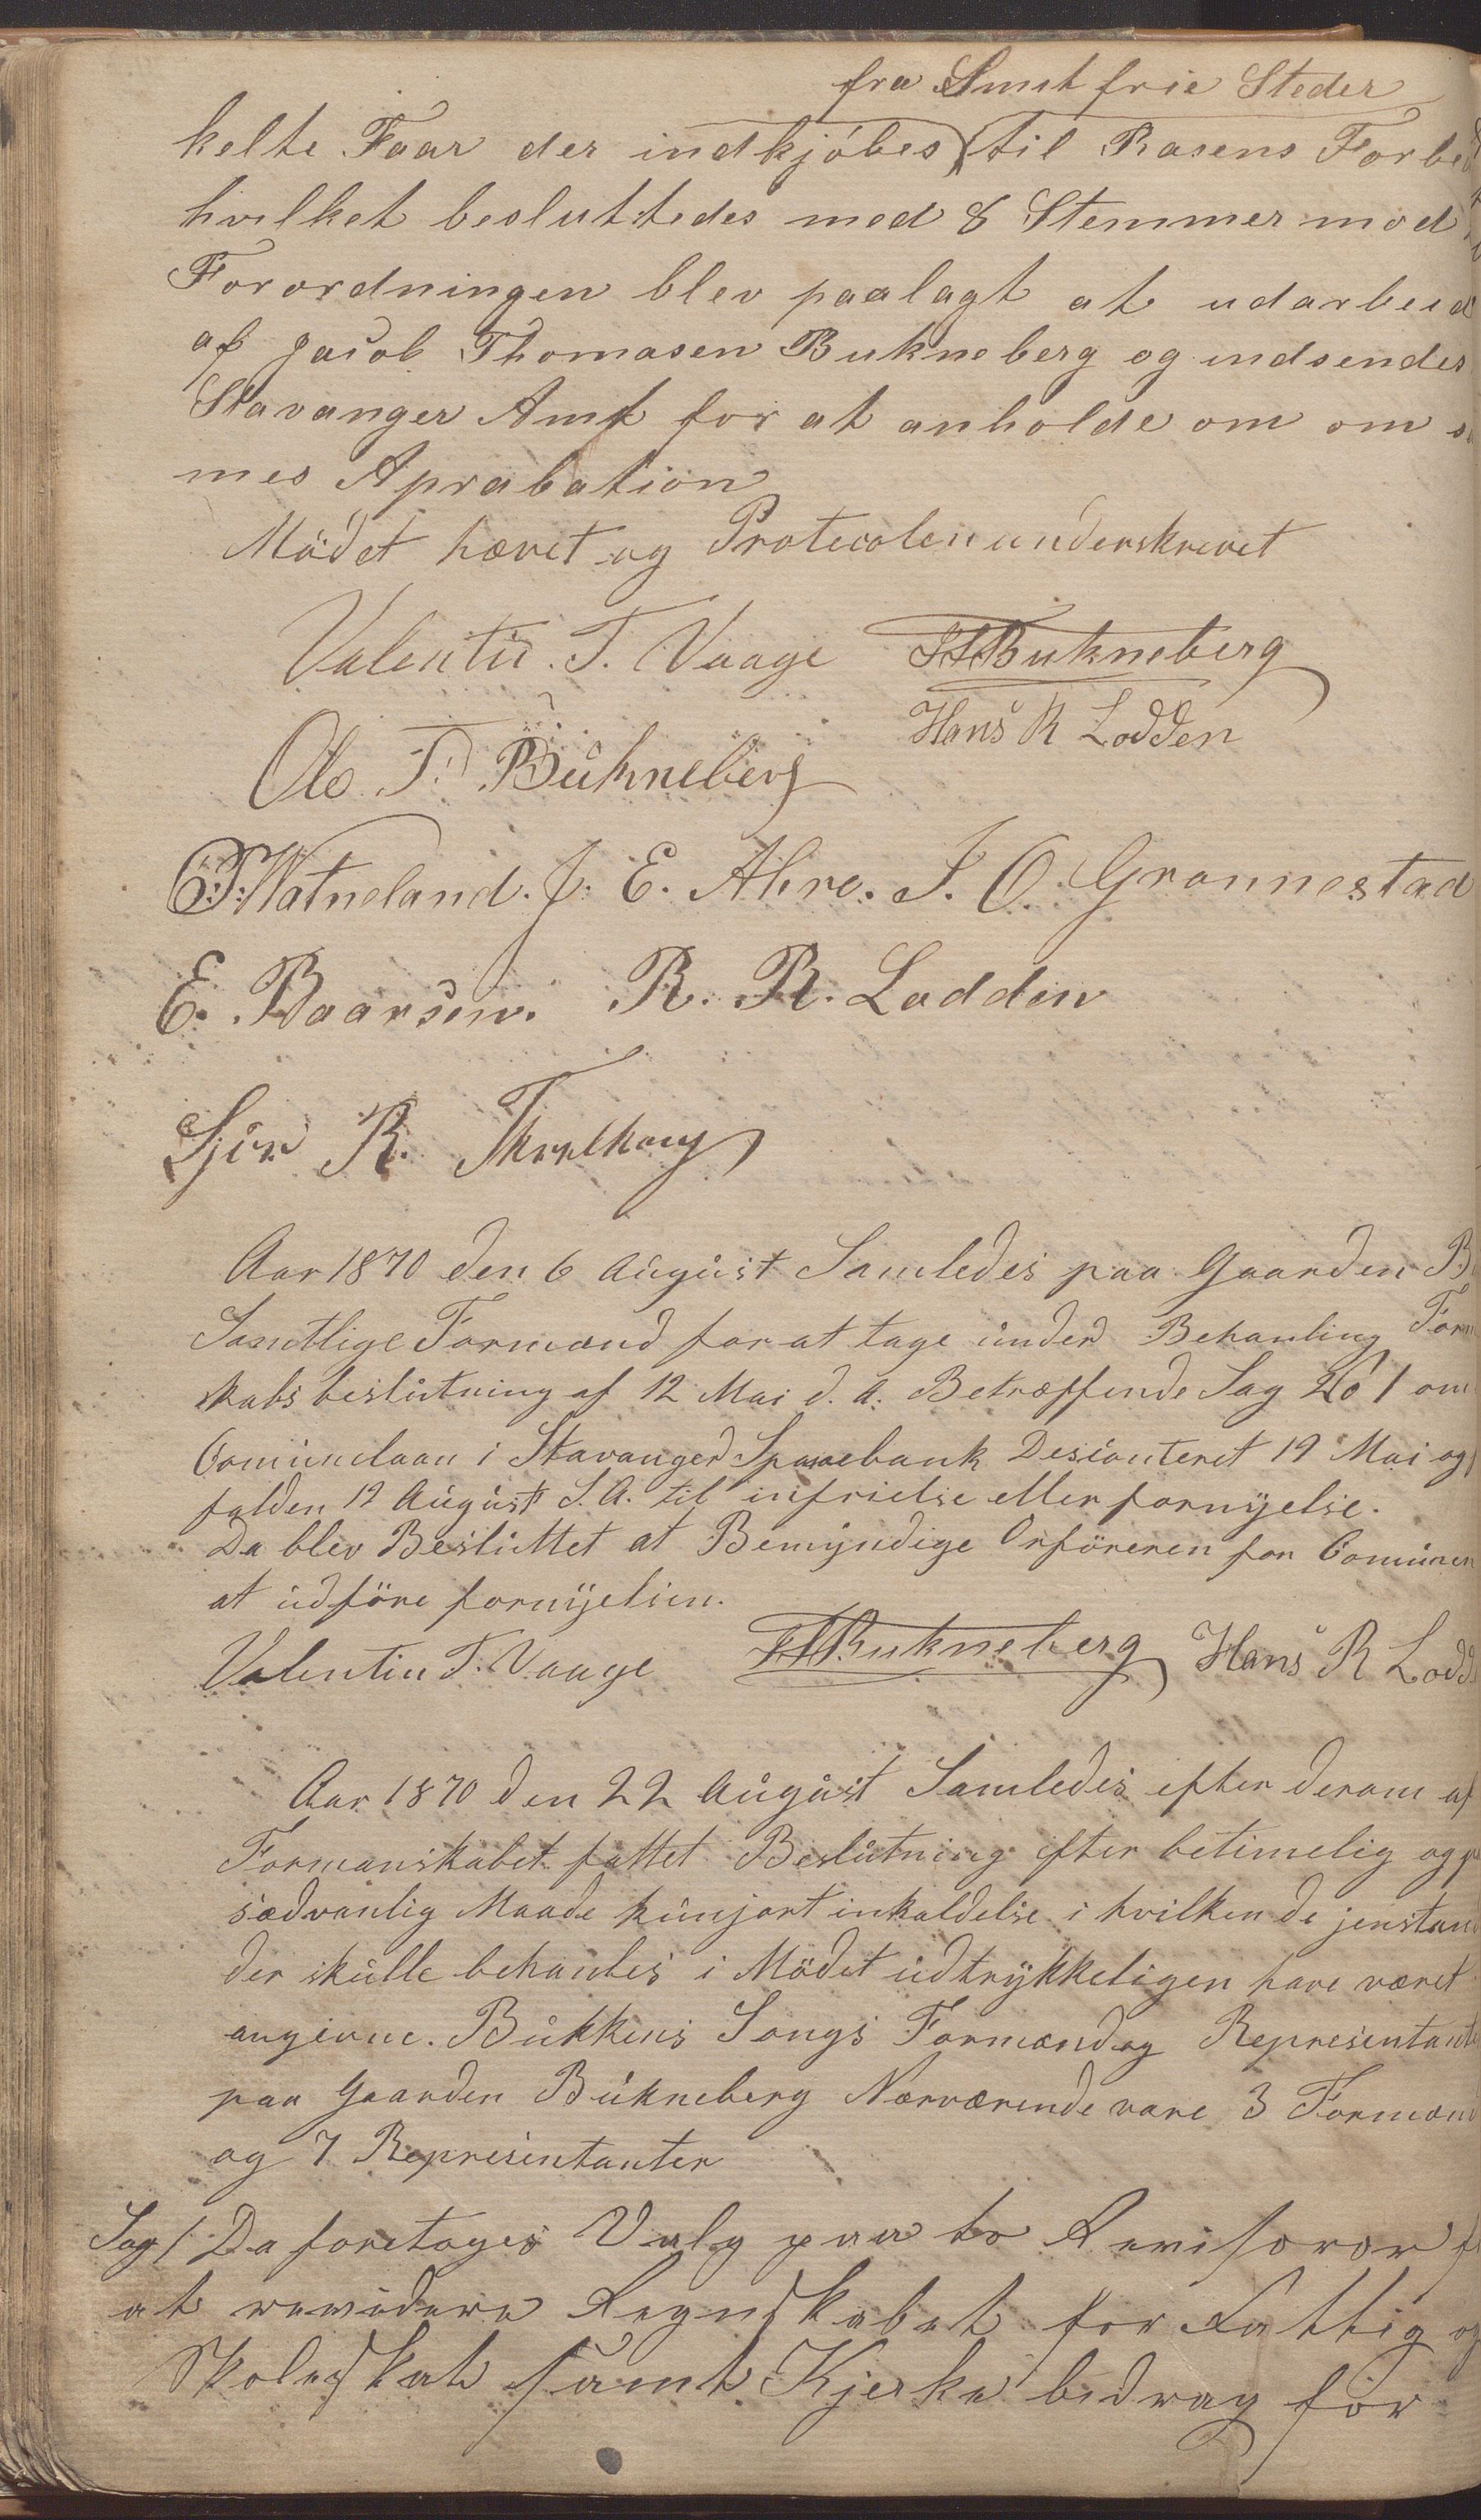 fra Smitfrie Steder
kelte Faar der indkjóbes til Rasens Forbe
hvilket besluttedes med 8 Stemmer mod
Forordningen blev paalagt at udarbeid
af Jacob Thomasen Bukneberg og indsendes
Stavanger Amt for at anholde om om sa
mes Aprabation
Mödet hævet og Protecolen underskrevet
Valentin. T. Vaage JTBukneberg
Hans R Lodden
Ole T. Bukneberg
G.T. Watneland. J. E. Ahre. J. O. Gronnestad
E. Baarsen. R. R. Lodden
Sjur R.
Aar 1870 den 6 August Samledes paa Gaarden B
Samtlige Formænd for at tage under Behanling Form
skabs beslutning af 12 Mai d. A. Betræffende Sag No 1 om
Comunelaan i Stavanger Sparebank Desconteret 19 Mai og
falden 19 August S. A. til infrielse eller fornyelse.
Da blev Besluttet at Bemyndige Orföreren for Comunen
at udföre fornyelsen.
Valentin T. Vaage JTBukneberg Hans R Lodd
Aar 1870 den 22 August Samledes efter derom af
Formanskabet fattet Beslutning efter betimelig og p
sædvanlig Maade kunjort inkaldelse i hvilken de jenstan
der skulle behanles i Mödet udtrykkeligen have været
angivne. Bukkens Songs Formænd og Representant
paa Gaarden Bukneberg Nærværende vare 3 Formænd
og 7 Representanter
Sag 1 Da foretoges Valg paa to Revisorer f
at revidere Regnskabet for Fattig og
Skoleskat samt Kjerke bidrag for